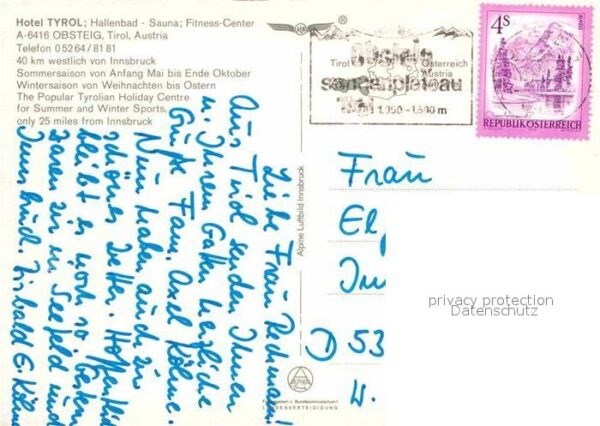 Hotel TYROL; Hallenbad - Sauna; Fitness-Center
A-6416 OBSTEIG, Tirol, Austria
Telefon 0 52 64 / 81 81
40 km westlich von Innsbruck
Sommersaison von Anfang Mai bis Ende Oktober
Wintersaison von Weihnachten bis Ostern
The Popular Tyrolian Holiday Centre
for Summer and Winter Sports,
only 25 miles from Innsbruck
Tirol Österreich
Austria
obsteig
sonnenplateau
1.000 - 1.500 m
4S
REPUBLIK ÖSTERREICH
Liebe Frau
Aus Tirol senden Ihnen
u. Ihrem Gatten herzliche
Grüße Fam. Axel Köhne.
Nun haben auch wir
schönes Wetter. Hoffentlich
bleibt es noch so. Gestern
waren wir in Seefeld und
Innsbruck.
Alpine Luftbild Innsbruck
Frau
El
D 53
ALPINA
LANDESVERTEIDIGUNG
privacy protection
Datenschutz